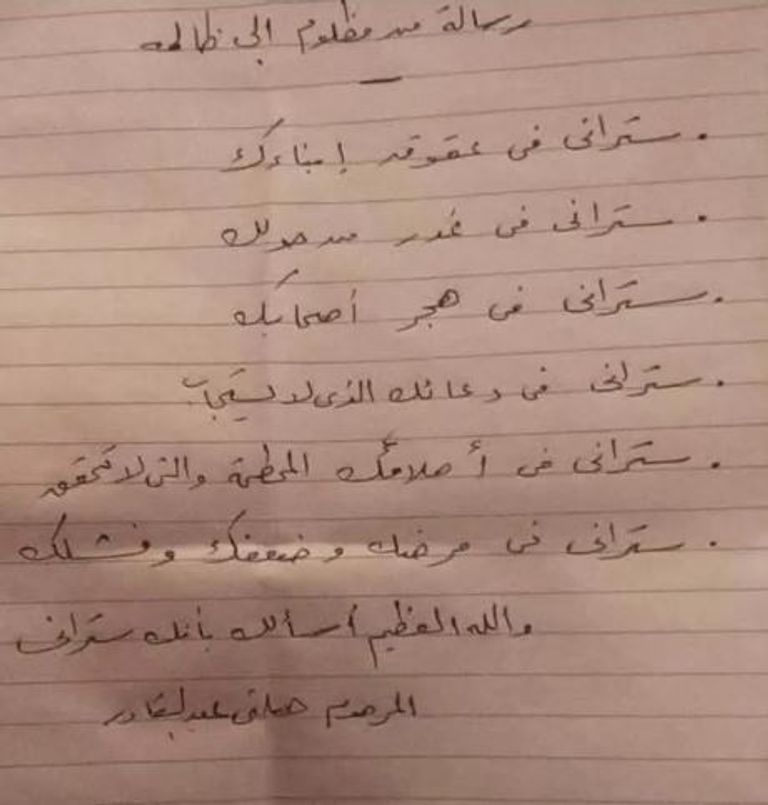 رسالة من مظلوم إلى ظالمه
. ستراني في عقوق إبناءك
. ستراني في غدر من حولك
. ستراني في هجر أصحابك
. ستراني في دعائك الذي لا يستجاب
. ستراني في أحلامك المحطمة والتي لا تتحقق
. ستراني في مرضك وضعفك وفشلك
والله العظيم بأنك ستراني
المرحوم عبدالقادر